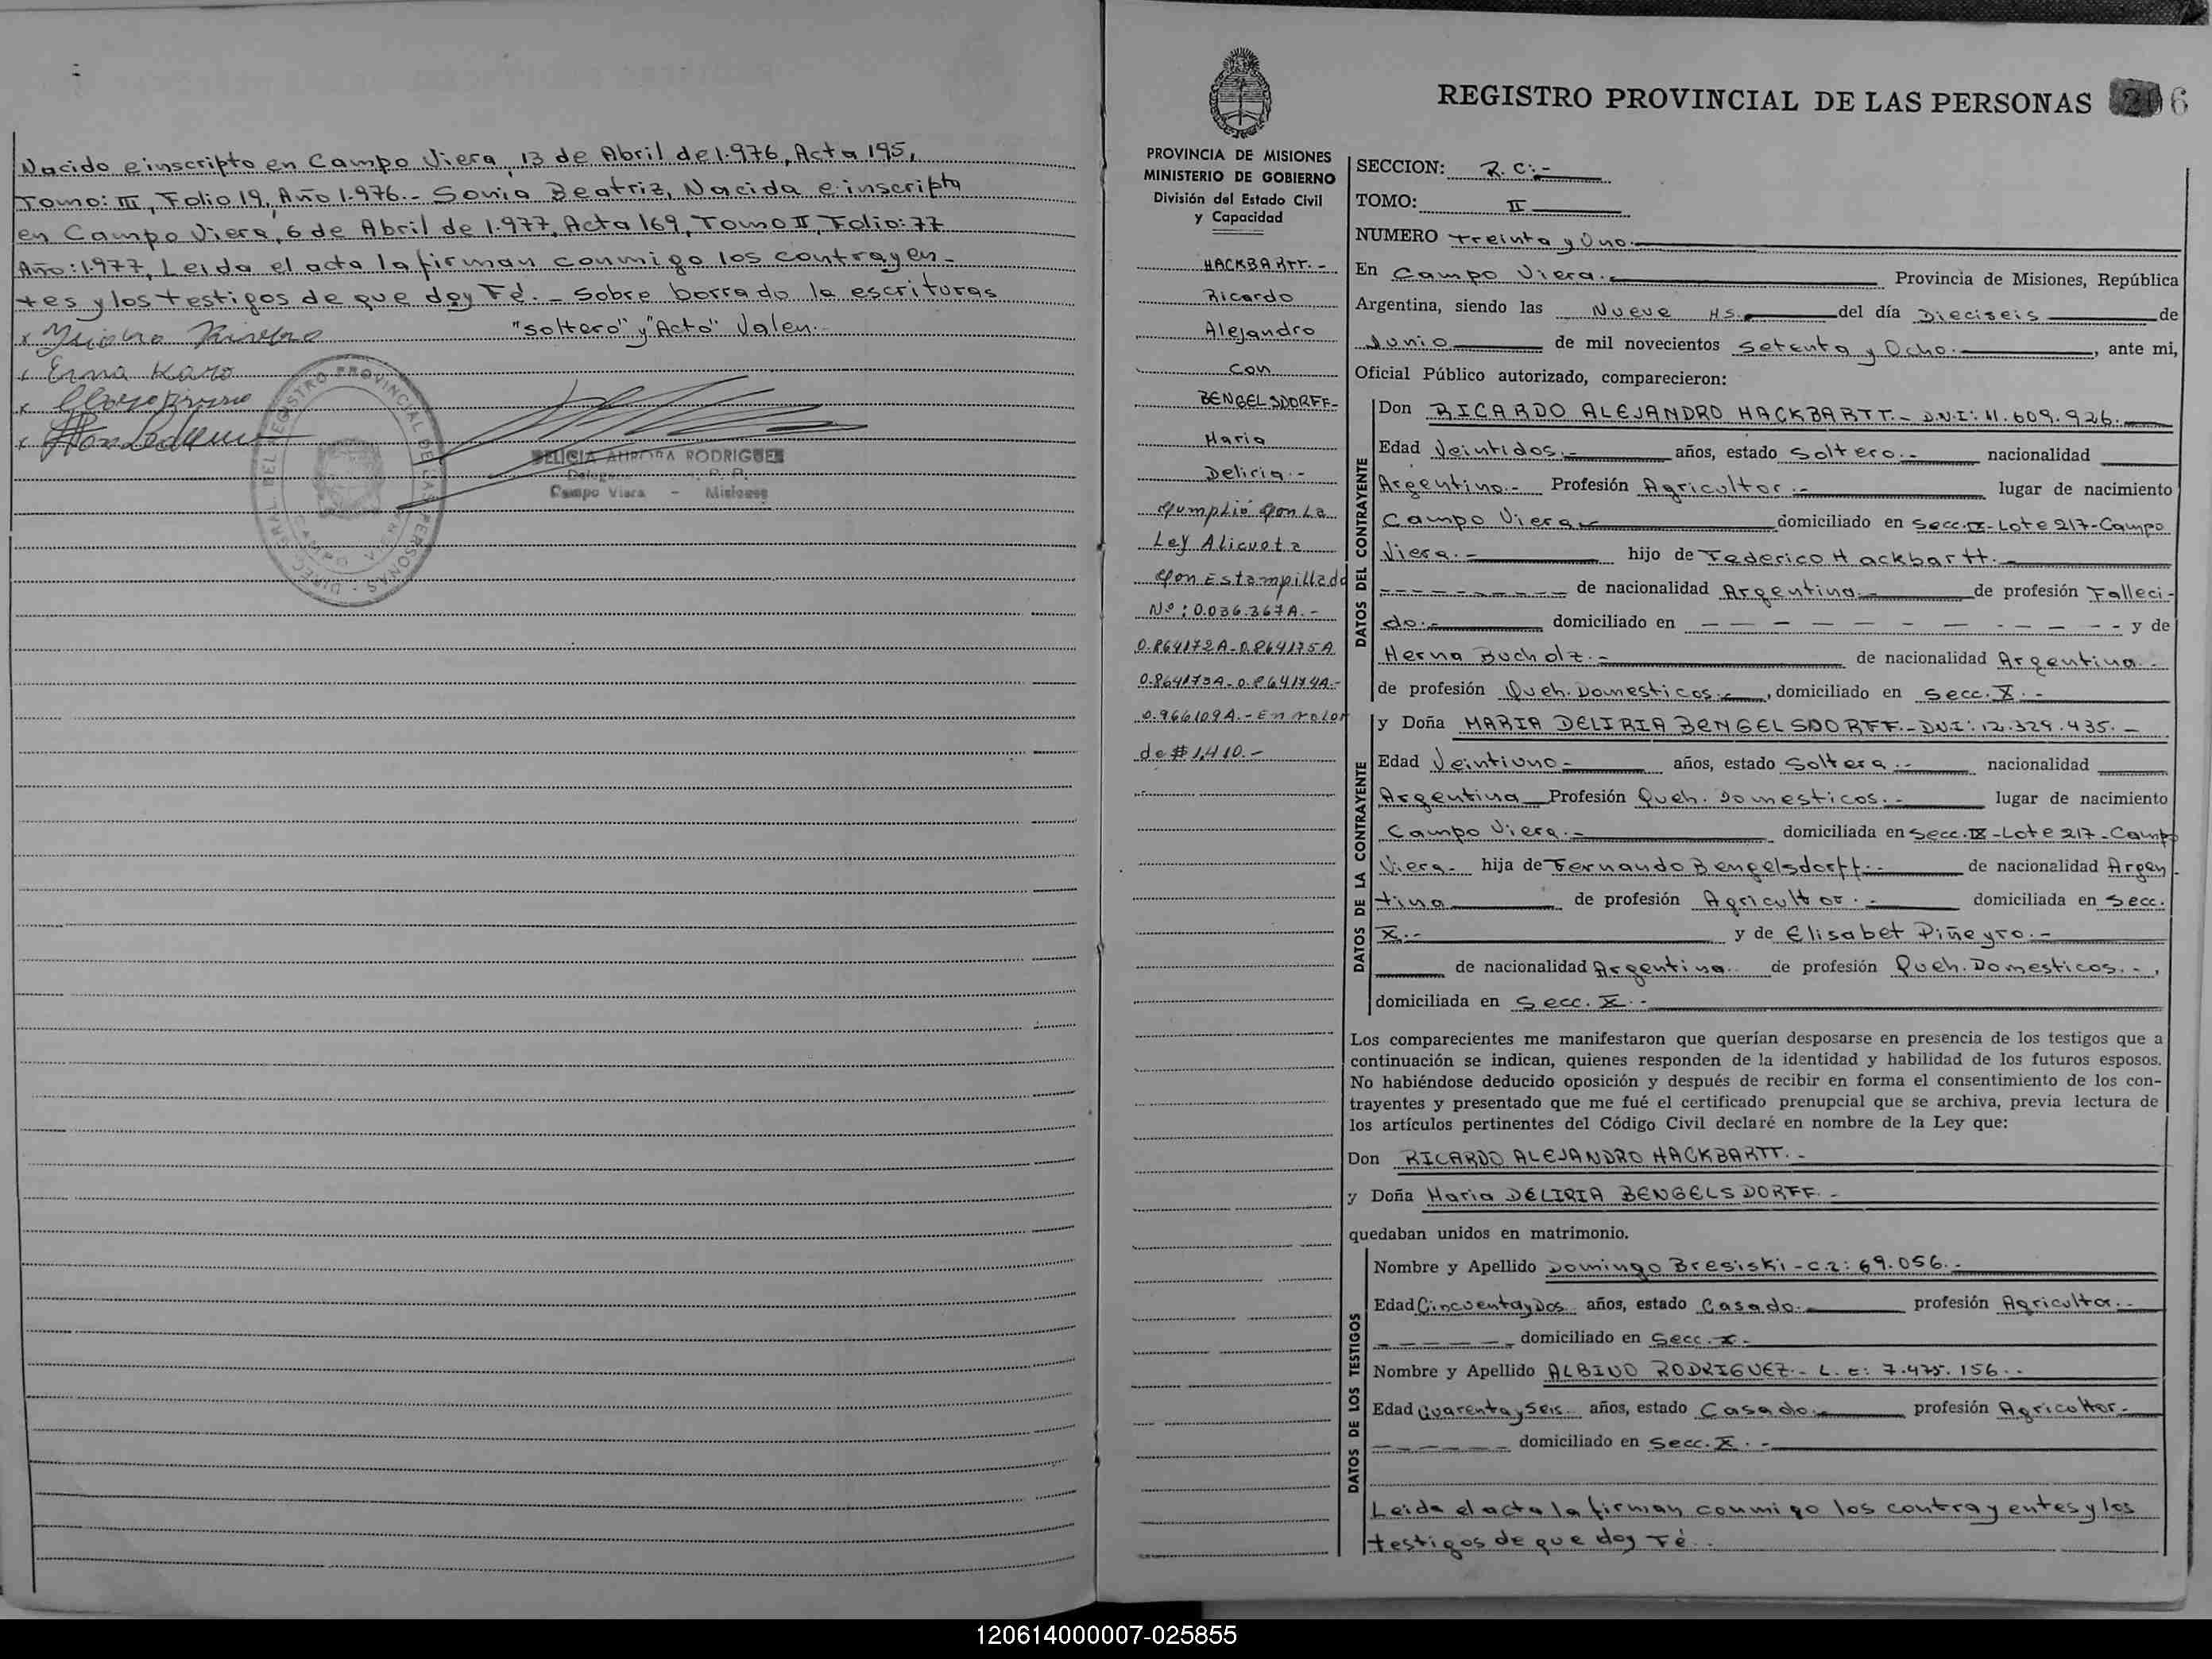 Nacido e inscripto en Campo Viera, 13 de Abril de 1.976, Acta 195,
Tomo: III, Folio 19, Año 1.976.- Sonia Beatriz, Nacida e inscripta
en Campo Viera, 6 de Abril de 1.977, Acta 169, Tomo II, Folio: 77
Año: 1977, Leida el acta la firman conmigo los contrayen-
tes y los testigos de que doy Fé. - Sobre borrado la escrituras
"soltero" y "Acto" Valen.-
Erna Karo
DELICIA AURORA RODRIGUEZ
Campo Viera - Misiones
REGISTRO PROVINCIAL DE LAS PERSONAS
PROVINCIA DE MISIONES
MINISTERIO DE GOBIERNO
División del Estado Civil
y Capacidad
HACKBARTT.-
Ricardo
Alejandro
con
BENGELSDORFF-
Maria
Deliria.-
Cumplió Con La
Ley Alicuota
Con Estampillado
Nº: 0.036.367A.-
0.864172A-0.864175A
0.864173A-0.864174A.-
0.966109A.- En valor
de $ 1,410.-
REGISTRO PROVINCIAL DE LAS PERSONAS 206
SECCION: R. C:.-
TOMO: II
NUMERO treinta y Uno.
En Campo Viera.- Provincia de Misiones, República
Argentina, siendo las Nueve Hs. del día Dieciseis de
Junio de mil novecientos setenta y Ocho.- , ante mi,
Oficial Público autorizado, comparecieron:
DATOS DEL CONTRAYENTE
Don RICARDO ALEJANDRO HACKBARTT.- D.N.I: 11.609.926.-
Edad Veintidos.- años, estado soltero.- nacionalidad
Argentino.- Profesión Agricultor.- lugar de nacimiento
Campo Viera- domiciliado en Secc. IX-Lote 217-Campo
Viera.- hijo de Federico Hackbartt.-
de nacionalidad Argentina.- de profesión Falleci-
do.- domiciliado en - - - - y de
Herna Bucholz.- de nacionalidad Argentina.-
de profesión Queh. Domesticos.- , domiciliado en Secc. X.-
DATOS DE LA CONTRAYENTE
y Doña MARIA DELIRIA BENGELSDORFF.- D.N.I: 12.329.435.-
Edad Veintiuno- años, estado Soltera.- nacionalidad
Argentina Profesión Queh. Domesticos.- lugar de nacimiento
Campo Viera.- domiciliada en Secc. IX-Lote 217-Campo
Viera- hija de Fernando Bengelsdorff.- de nacionalidad Argen-
tina de profesión Agricultor.- domiciliada en Secc.
X.- y de Elisabet Piñeyro.-
de nacionalidad Argentina.. de profesión Queh. Domesticos.-,
domiciliada en Secc. X.-
Los comparecientes me manifestaron que querían desposarse en presencia de los testigos que a
continuación se indican, quienes responden de la identidad y habilidad de los futuros esposos.
No habiéndose deducido oposición y después de recibir en forma el consentimiento de los con-
trayentes y presentado que me fué el certificado prenupcial que se archiva, previa lectura de
los artículos pertinentes del Código Civil declaré en nombre de la Ley que:
Don RICARDO ALEJANDRO HACKBARTT.-
y Doña Maria DELIRIA BENGELSDORFF.-
quedaban unidos en matrimonio.
DATOS DE LOS TESTIGOS
Nombre y Apellido Domingo Bresiski - C.I: 69.056.-
Edad Cincuenta y Dos años, estado Casado.- profesión Agricultor.-
domiciliado en Secc. X-
Nombre y Apellido ALBINO RODRIGUEZ.- L. E: 7.475.156.-
Edad Cuarenta y Seis años, estado Casado.- profesión Agricultor.-
domiciliado en Secc. X.-
Leida el acta la firman conmigo los contrayentes y los
testigos de que doy Fé.
120614000007-025855